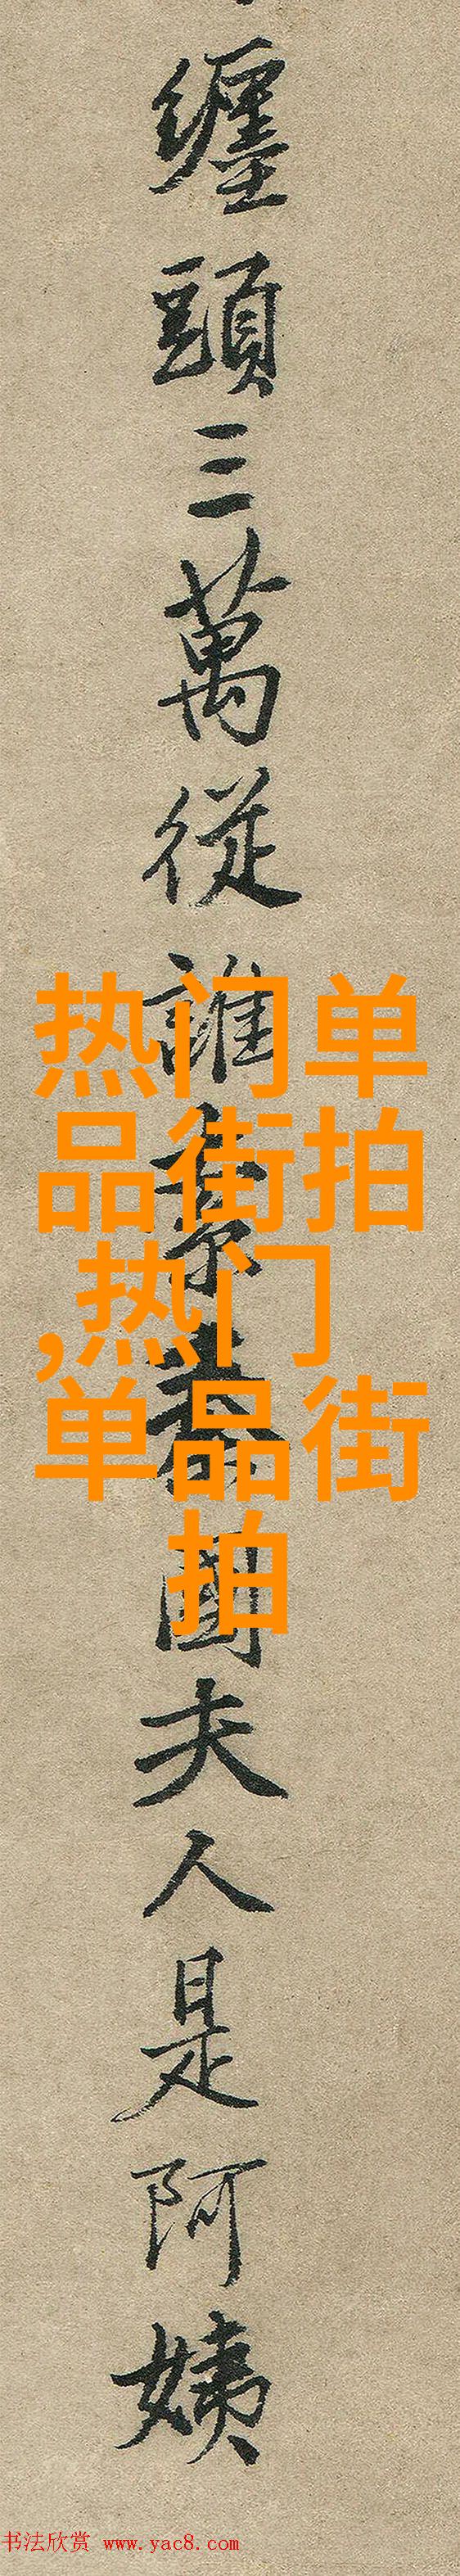 纏頭三萬從誰索秦國夫人是阿姨
热门单
品街拍
,热门
单品街
拍
书法欣赏 www.yac8.com